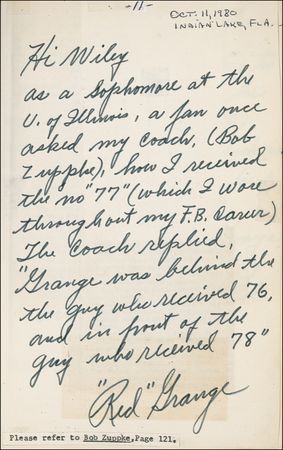 -11-
OCT. 11, 1980
INDIAN LAKE, FLA.
Hi Wiley
as a Sophomore at the
U. of Illinois, a fan once
asked my coach, (Bob
Zuppke), how I received
the no "77" (which I wore
throughout my F.B. Career)
The coach replied,
"Grange was behind the
the guy who received 76,
and in front of the
guy who received 78"
"Red" Grange
Please refer to Bob Zuppke, Page 121.